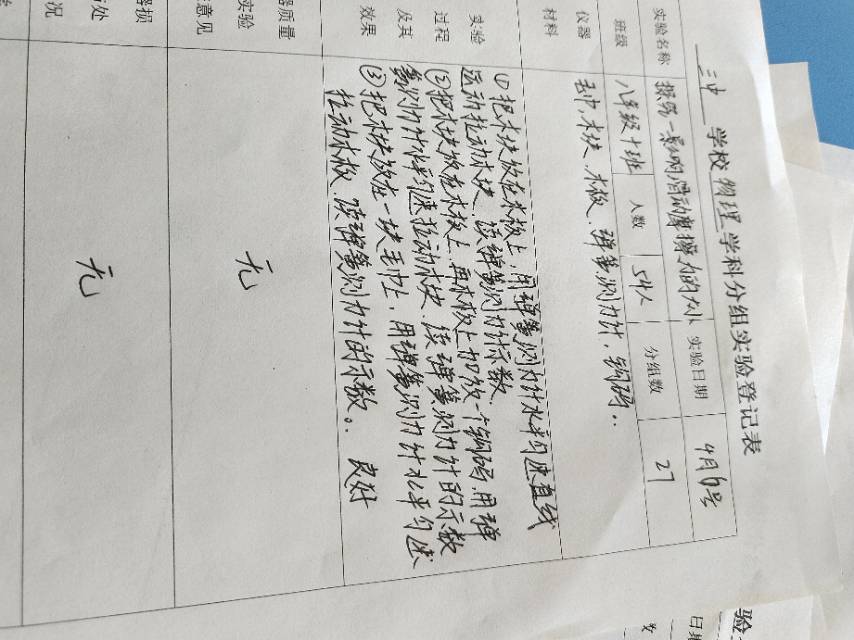 三中 学校 物理 学科分组实验登记表
实验名称 探究影响滑动摩擦力的大小 实验日期 4月6号
班级 八年级十班 人数 54人 分组数 27
仪器 毛巾,木块,木板,弹簧测力计,钩码..
材料
实验
过程
及其
效果
①把木块放在木板上,用弹簧测力计水平匀速直线
运动拉动木块,读弹簧测力计示数
②把木块放在木板上,再木板上加放一个钩码,用弹
簧测力计水平匀速拉动木块,读弹簧测力计的示数
③把木块放在一块毛巾上,用弹簧测力计水平匀速
拉动木板,读弹簧测力计的示数。. 良好
器质量
实验
意见
无
器损
处
况
无
验
日期